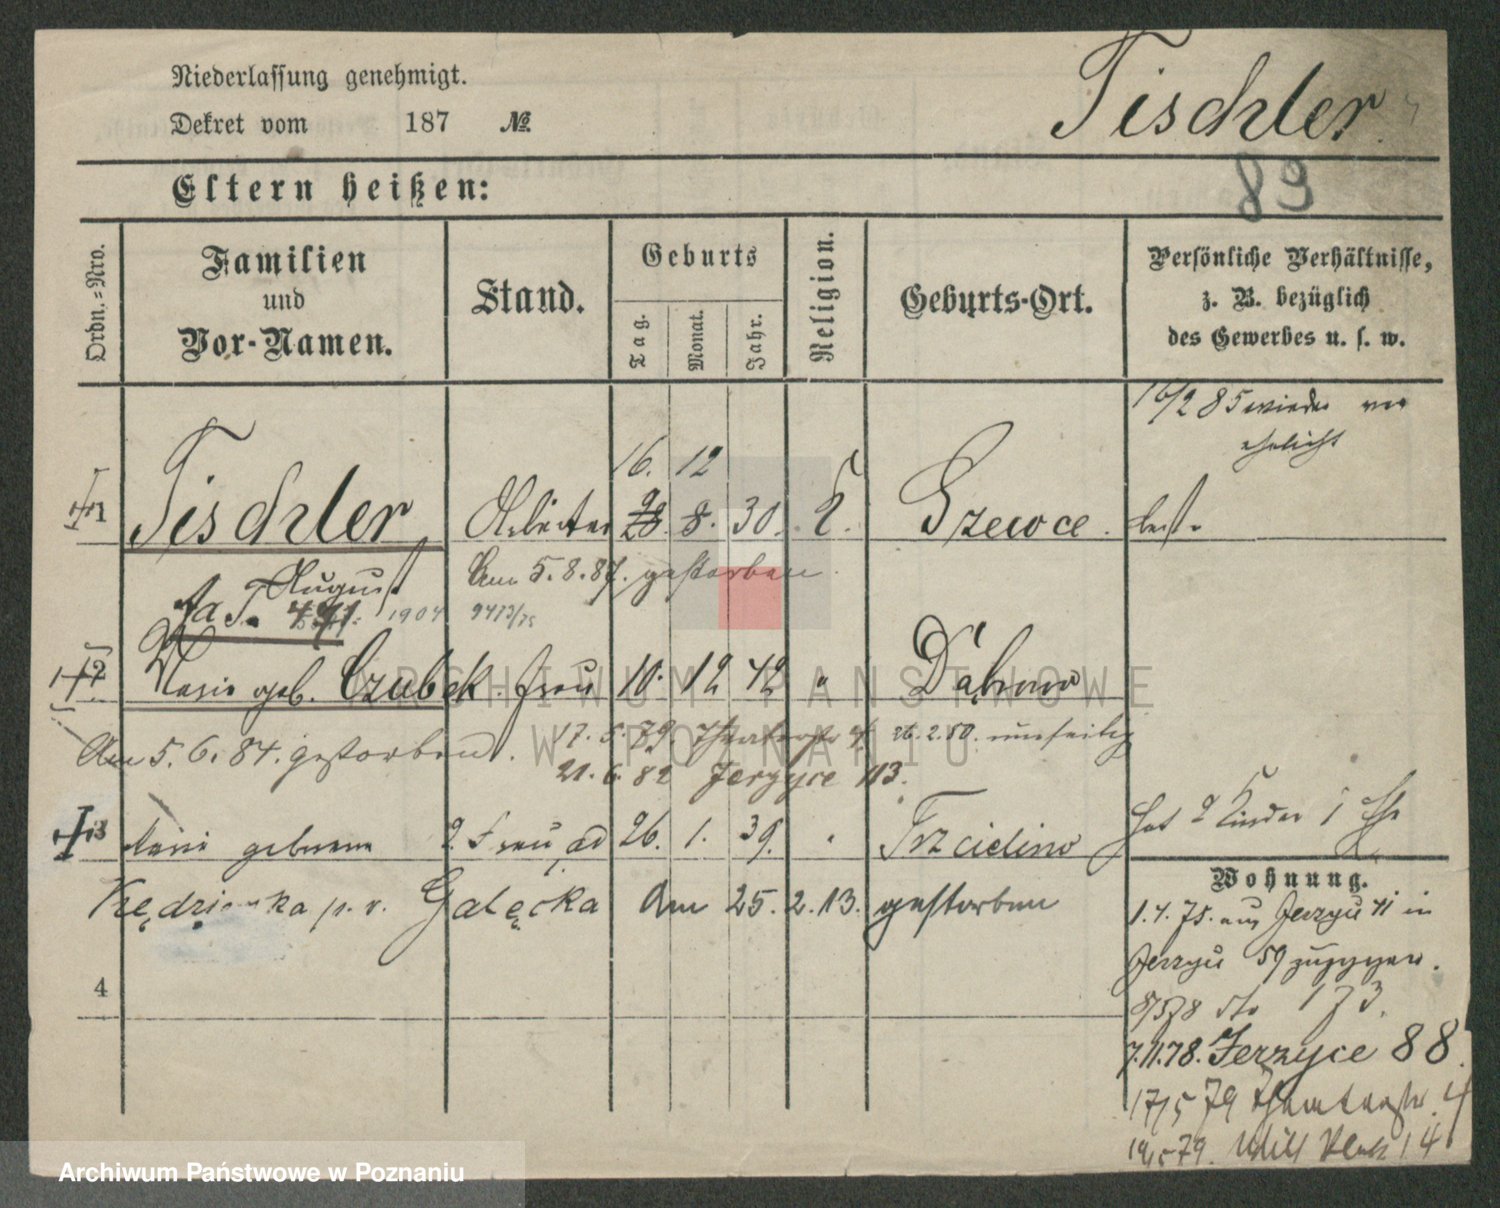 Niederlassung genehmigt.
Dekret vom 187 №
Tischler
89
Eltern heißen:
Ordn.=Nro.
Familien
und
Vor-Namen.
Stand.
Geburts
Tag.
Monat.
Jahr.
Religion.
Geburts-Ort.
Persönliche Verhältnisse,
z. B. bezüglich
des Gewerbes u. s. w.
16/2 85 wieder ver
ehelicht
16. 12
1 Tischler Arbeiter 28. 8. 30. Szewce.
August
Am 5.8.87. gestorben
1904
2 Marie geb. Czubek. Frau 10. 12 42 "
Am 5.6.84. gestorben.
17.5.79 26.2.80.
21.6.82 Jerzyce 113.
3 Marie geborene 2. Frau ad 26. 1. 39. " Trzcielino
Hat 2 Kinder 1 Ehe
Galęcka Am 25.2.13. gestorben
Wohnung.
1.4.75. aus Jerzyce 41 in
Jerzyce 59 zugezogen.
173.
4
7.11.78. Jerzyce 88.
17/5 79
14
ARCHIWUM PAŃSTWOWE
W POZNANIU
Archiwum Państwowe w Poznaniu